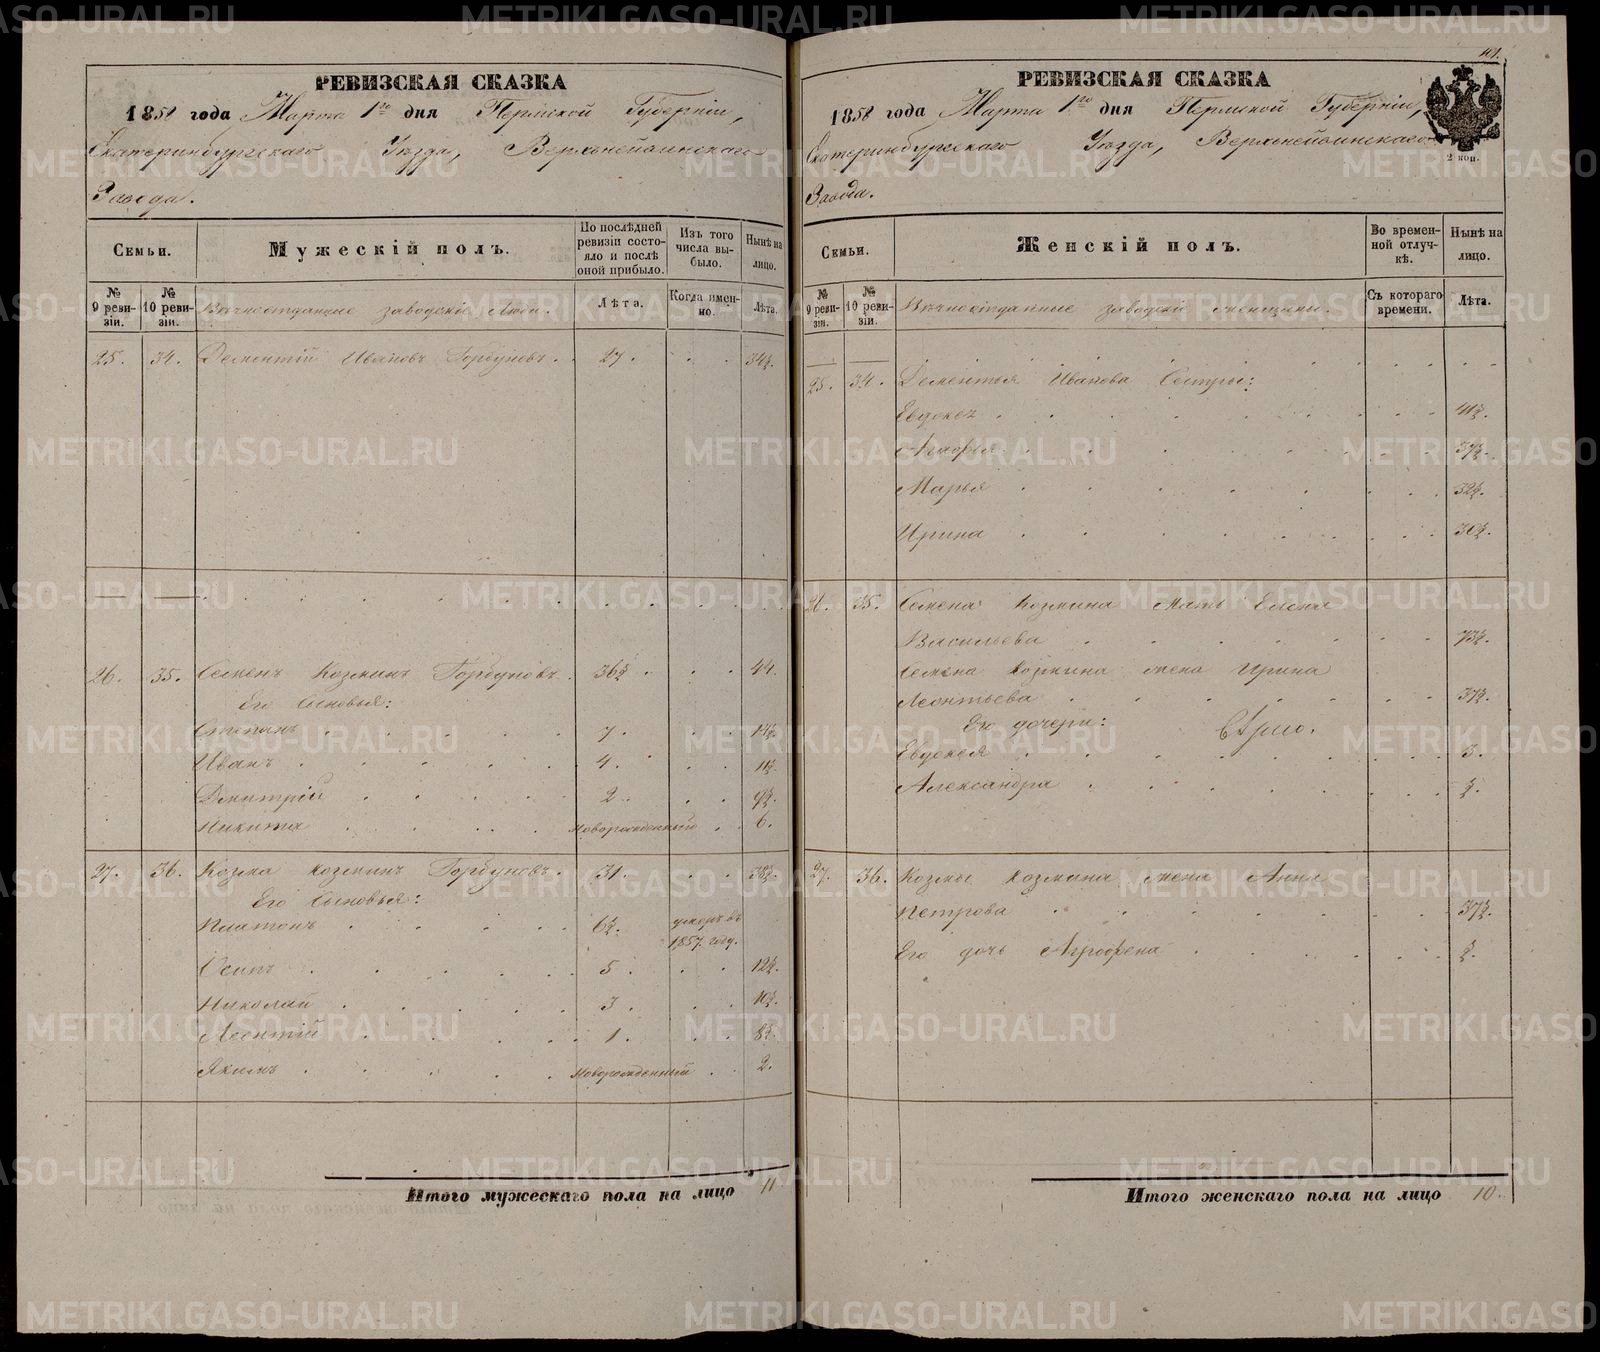 РЕВИЗСКАЯ СКАЗКА
1858 года Марта 1го дня Пермской Губерніи,
Екатеринбургскаго Уѣзда, Верхнейвинскаго
Завода.
Семьи.
Мужескій полъ.
По послѣдней ревизіи состояло и послѣ оной прибыло.
Изъ того числа выбыло.
Нынѣ на лицо.
№ 9 ревизіи.
№ 10 ревизіи.
Вѣчноотданные заводскіе люди.
Лѣта.
Когда именно.
Лѣта.
25. 34. Дементій Ивановъ Горбуновъ. 27. 34½.
26. 35. Семенъ Козминъ Горбуновъ. 36½. 44.
Его Сыновья:
Степанъ 7. 14½.
Иванъ 4. 11½.
Дмитрій 2. 9½.
Никита Новорожденный 6.
27. 36. Козма Козминъ Горбуновъ. 31. 38½.
Его Сыновья:
Платонъ 6½. умеръ въ 1857 году.
Осипъ 5. 12½.
Николай 3. 10½.
Леонтій 1. 8½.
Якимъ Новорожденный 2.
Итого мужескаго пола на лицо 11
41.
РЕВИЗСКАЯ СКАЗКА
1858 года Марта 1го дня Пермской Губерніи,
Екатеринбургскаго Уѣзда, Верхнейвинскаго
Завода.
2 коп.
Семьи.
Женскій полъ.
Во временной отлучкѣ.
Нынѣ на лицо.
№ 9 ревизіи.
№ 10 ревизіи.
Вѣчноотданные заводскіе женщины.
Съ котораго времени.
Лѣта.
25. 34. Дементья Иванова Сестры:
41½.
37½.
Марья 32½.
Ирина 30½.
26. 35. Семена Козмина мать Елена
Васильева 73½.
Семена Козмина жена Ирина
Леонтьева 37½.
Ея дочери:
Евдокея 3.
Александра ½.
27. 36. Козмы Козмина жена Анна
Петрова 37½.
Его дочь Агрофена ½.
Итого женскаго пола на лицо 10.
METRIKI.GASO-URAL.RU